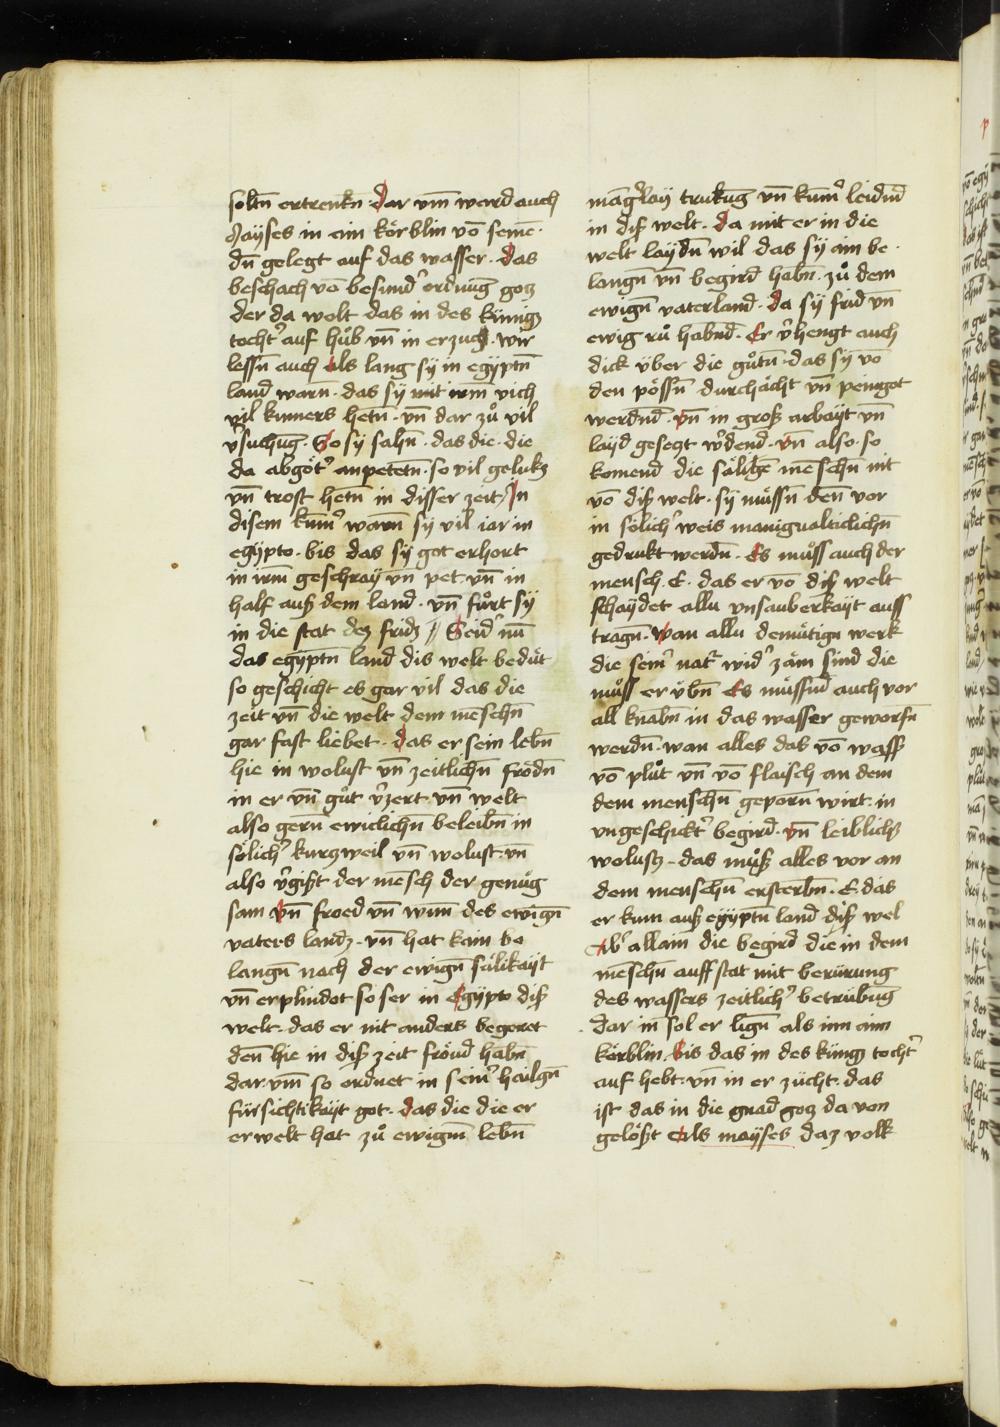 soltn̄ ertrenkn̄ dar vm̄ ward auch
Mayses in ain körblin vō seinē
dn̄ gelegt auf das wasser · das
beschach vō besundˀ ordnūg gotz
der da wolt das in des künigs
tochtˀ auf hůb vn̄ in erzuch · wir
lessn̄ auch als lang sy in egyptn̄
land warn̄ · das sy mit irm̄ vich
vil kumers hetn̄ · vn̄ dar zů vil
vˀsuchūg · So sy sahn̄ · das die · die
da abgötˀ anpetetn̄ · so vil gelukz
vn̄ trost hetn̄ in disser zeit / In
disem kumˀ warn̄ sy vil iar in
egypto · bis das sy got erhort
in irm̄ geschray vn̄ pet · vn̄ in
half auß dem land · vn̄ fůrt sy
in die stat dez fridz // Seidˀ nū
das egyptn̄ land dis welt bedüt
so geschicht es gar vil das die
zeit vn̄ die welt dem mēschn̄
gar fast liebet · das er sein lebn̄
hie in wolust vn̄ zeitlichn̄ frödn̄
in er vn̄ gůt vˀzert · vn̄ welt
also gern̄ ewiclichn̄ beleibn̄ in
sölichˀ kurzweil vn̄ wolust · vn̄
also vˀgißt der mēsch der genüg
sam vn̄ froed vn̄ wun̄ des ewign̄
vaters landz · vn̄ hat kain be
langn̄ nach der ewign̄ sälikayt
vn̄ erplindot so ser in Egypto diß
welt · das er nit anders begeret
den̄ hie in diß zeit fröud habn̄
dar · vm̄ so ordnet in seinˀ hailgn̄
fürsichtikayt got · das die die er
erwelt hat zů ewigm̄ lebn̄
māgˀlay trukūg vn̄ kumˀ leidnd
in diß welt · da mit er in die
welt laydn̄ wil das sy ain be
langn̄ vn̄ begird habn̄ · zů dem
ewign̄ vaterland · da sy frid vn̄
ewig rů habnd · Er vˀhengt auch
dick über die gůtn̄ · das sy vō
den pössn̄ durchächt vn̄ peingot
werdnd · vn̄ in groß arbayt vn̄
layd gesezt wˀdend · vn̄ also · so
komend die säligē mēschn̄ nit
vō diß welt · sy müssn̄ den̄ vor
in sölichˀ weis manigualticlichn̄
gedrukt werdn̄ · Es můss auch der
mensch · E · das er vō diß welt
schaydet allu vnsauberkayt auss
tragn̄ · Wan allu demütign̄ werk
die seinˀ natˀ widˀ zäm sind die
můss er übn̄ Es müssnd auch vor
all knabn̄ in das wasser geworfn̄
werdn̄ · wan alles das vō wass
vō plůt vn̄ vō flaisch an dem
dem menschn̄ geporn̄ wirt · in
vngeschicktˀ begird · vn̄ leiblichs
wolustz · das můß alles vor an
dem menschn̄ ersterbn̄ · E · das
er kum auß egyptn̄ land diß wel
Abˀ allain die begird die in dem
mēschn̄ auff stat mit berürung
des wassers zeitlichˀ betrübūg
dar in̄ sol er lign̄ als inn aim
körblin · bis das in des küngs tochtˀ
auf hebt · vn̄ in er zücht · das
ist das in die gnad gotz da von
gelößt Als mayses daz volk